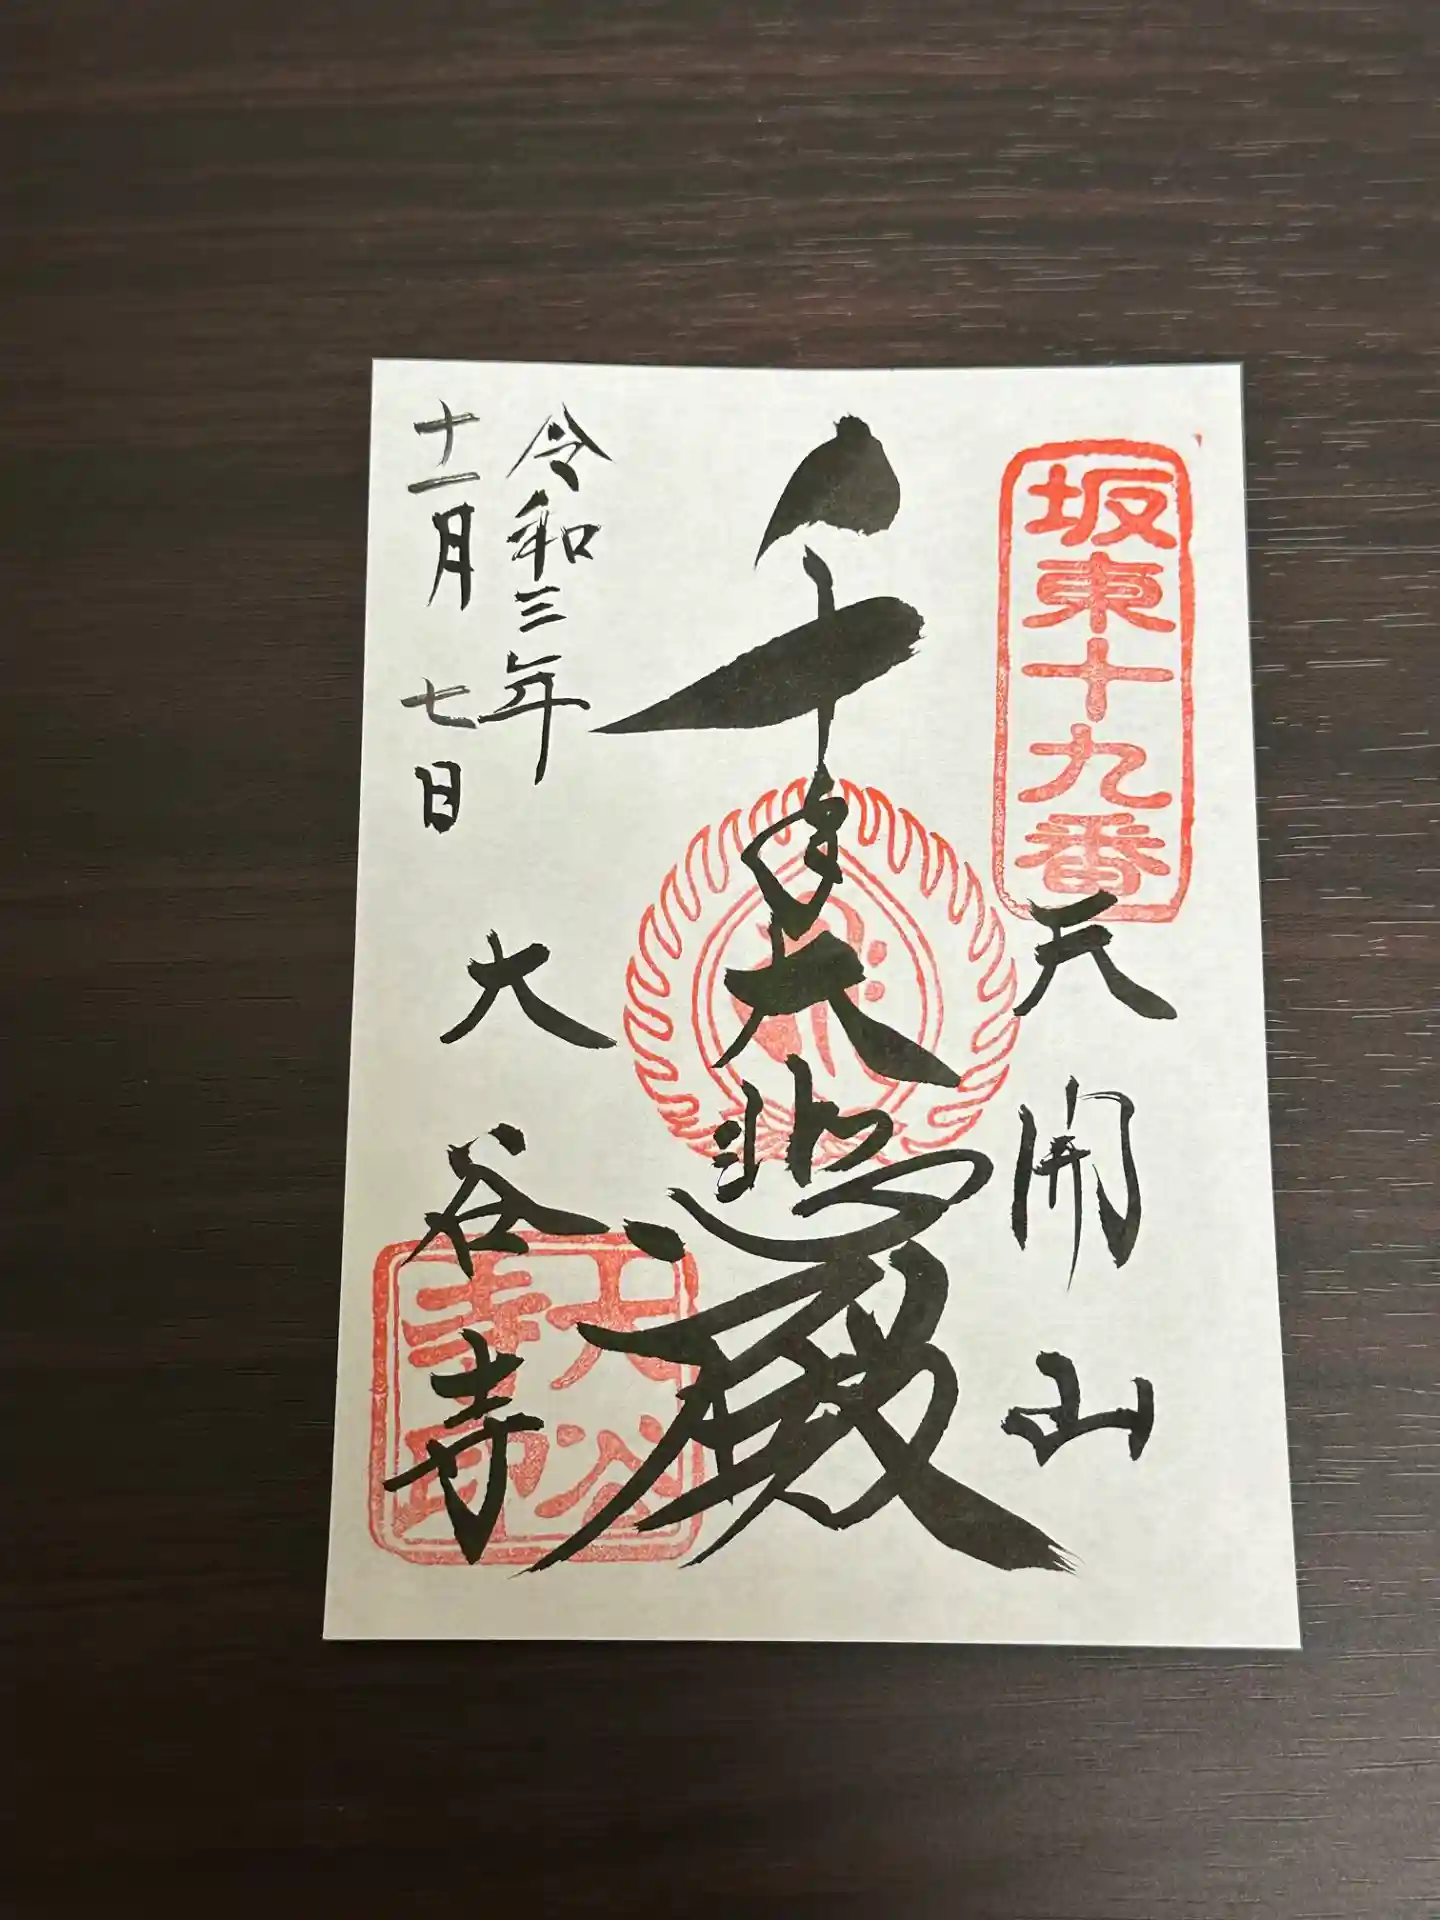 坂東十九番
天開山
千手大悲殿
大谷寺
令和三年
十一月七日
大谷
寺印